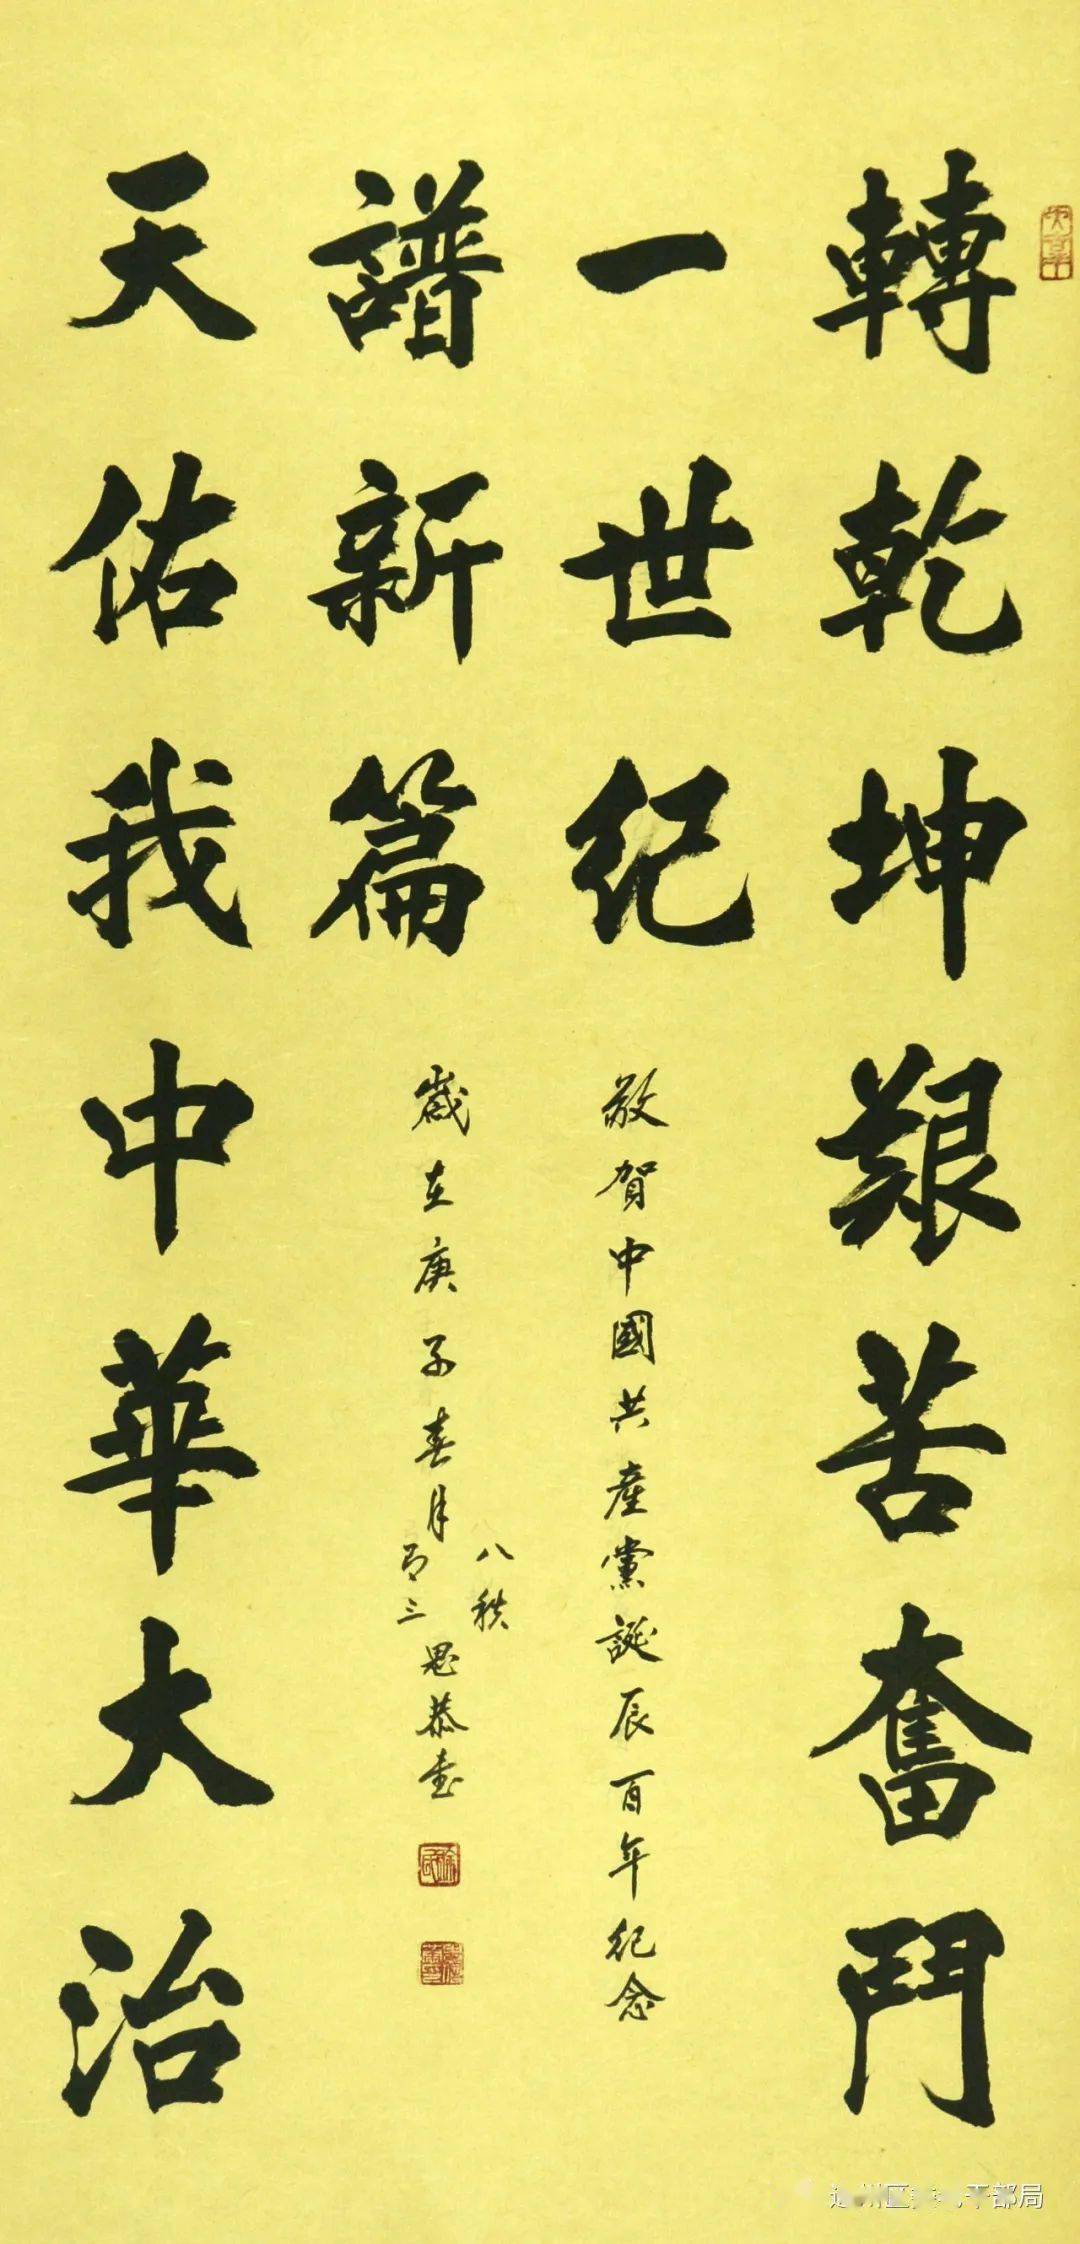 轉乾坤艱苦奮鬥
一世紀
敬賀中國共產黨誕辰百年紀念
譜新篇
歲在庚子春月
八秩
三
恭書
天佑我中華大治
州区 干部局